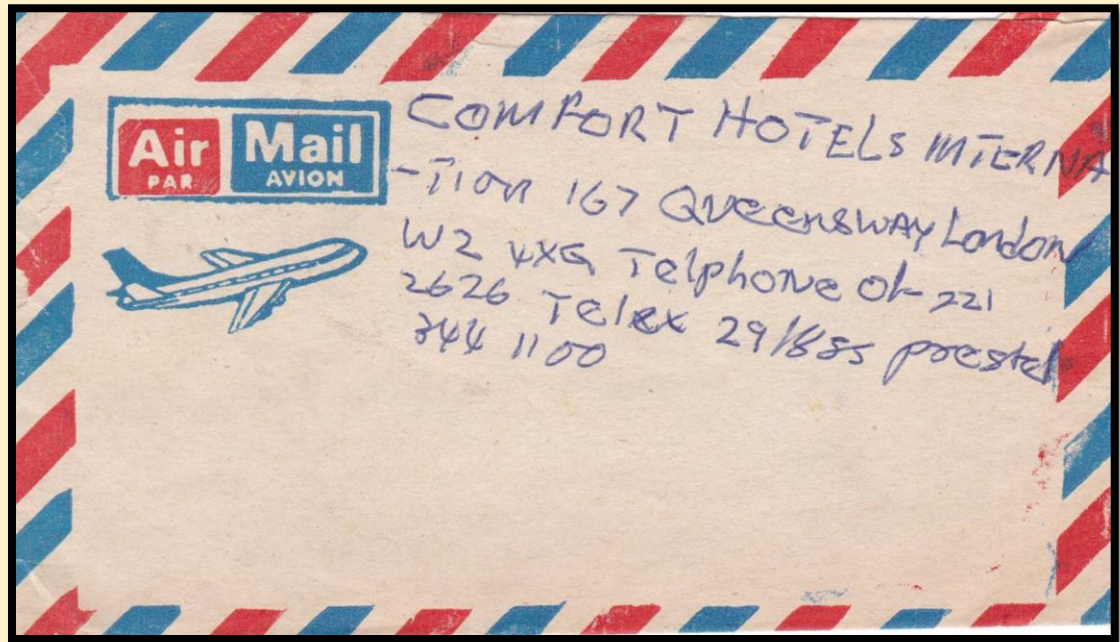 Air Mail
PAR AVION
COMFORT HOTELS INTERNA
-TION 167 QUEENSWAY London
W2 4XG Telphone 01-221
2626 Telex prestel
344 1100